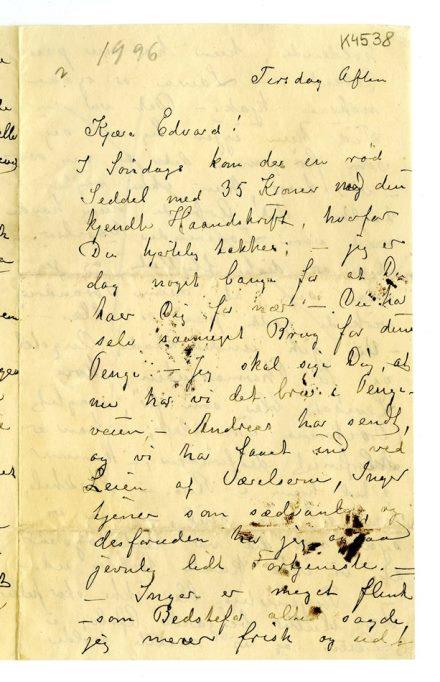 K4538
1996
Tirsdag Aften
Kjære Edvard!
I Søndags kom der en rød
Seddel med 35 Kroner med den
kjendte Haandskrift, hvorfor
Du hjertelig takkes; – jeg er
dog noget bange for at Du
taer Dig for nær – Du har
selv saameget Brug for dine
Penge – Jeg skal sige Dig, at
nu har vi det bra i Penge-
veien, – Andreas har sendt,
og vi har faaet ind ved
Leien af Værelserne, Inger
tjener som sædvanlig, og
desforuden har jeg ogsaa
jevnlig lidt Fortjeneste. –
– Inger er meget flink
– som Bedstefar altid sagde,
jeg mener frisk og